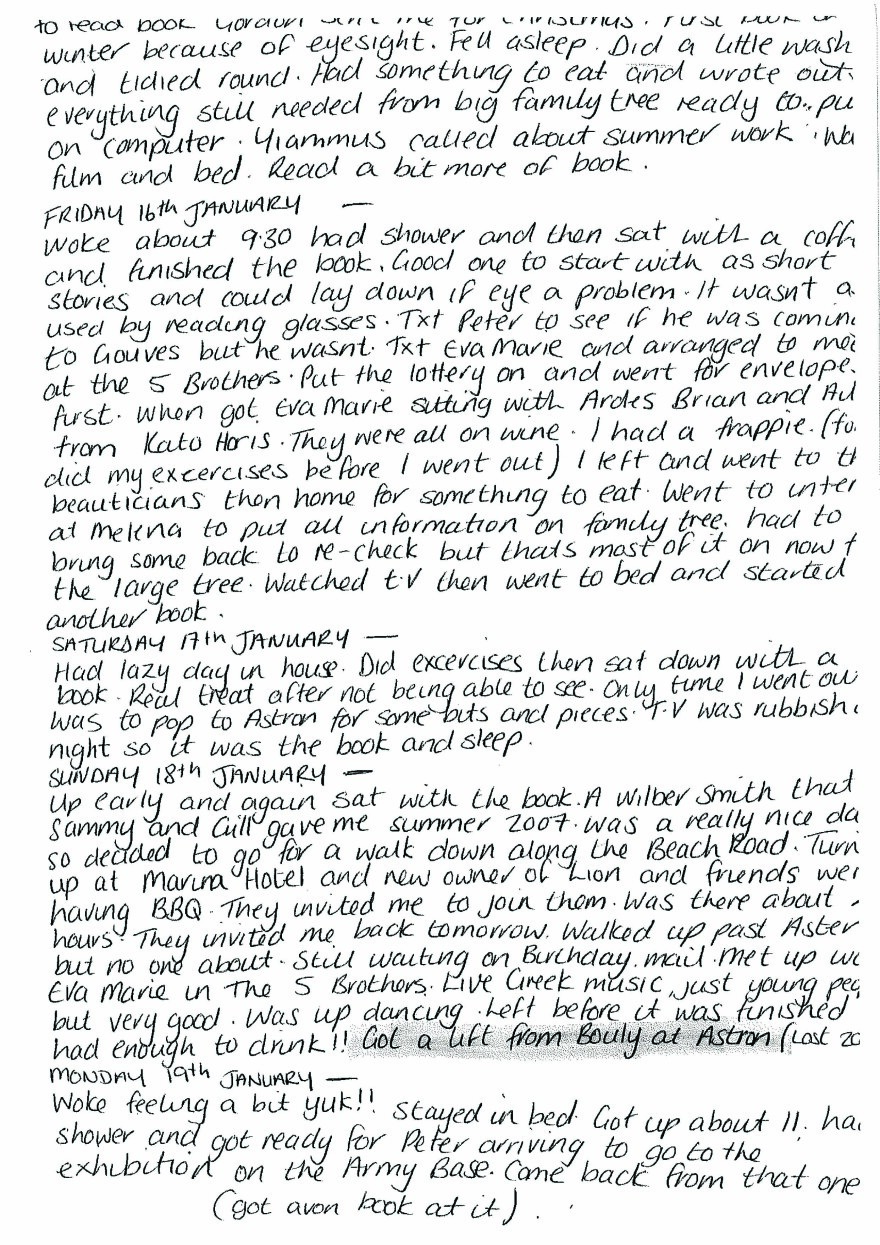 to read book
winter because of eyesight. Fell asleep. Did a little wash
and tidied round. Had something to eat and wrote out
everything still needed from big family tree ready to.. pu
on computer. Yiammus called about summer work. Wa
film and bed. Read a bit more of book.
FRIDAY 16th JANUARY —
Woke about 9.30 had shower and then sat with a coff
and finished the book. Good one to start with as short
stories and could lay down if eye a problem. It wasnt a
used by reading glasses. Txt Peter to see if he was comin
to Gouves but he wasnt. Txt Eva Marie and arranged to me
at the 5 Brothers. Put the lottery on and went for envelope.
first. When got Eva Marie sitting with Ardes Brian and
from Kato Horis. They were all on wine. I had a frappie. (fo
did my excercises before I went out) I left and went to th
beauticians then home for something to eat. Went to inter
at Melena to put all information on family tree. had to
bring some back to re-check but thats most of it on now f
the large tree. Watched t.v then went to bed and started
another book.
SATURSAY 17th JANUARY —
Had lazy day in house. Did excercises then sat down with a
book. Real treat after not being able to see. Only time I went ou
was to pop to Astron for some bits and pieces. T.V was rubbish.
night so it was the book and sleep.
SUNDAY 18th JANUARY —
Up early and again sat with the book. A Wilber Smith that
Sammy and Gill gave me summer 2007. was a really nice da
so decided to go for a walk down along the Beach Road. Turn
up at Marina Hotel and new owner of Lion and friends wer
having BBQ. They invited me to join them. Was there about
hours. They invited me back tomorrow. Walked up past Aster
but no one about. Still waiting on Birthday mail. Met up w
Eva Marie in The 5 Brothers. Live Greek music, just young peo
but very good. Was up dancing. Left before it was finished
had enough to drink!! Got a lift from Bouly at Astron (Last 20
MONDAY 19th JANUARY —
Woke feeling a bit yuk!! Stayed in bed. Got up about 11. ha
shower and got ready for Peter arriving to go to the
exhibition on the Army Base. Come back from that one
(got avon book at it).